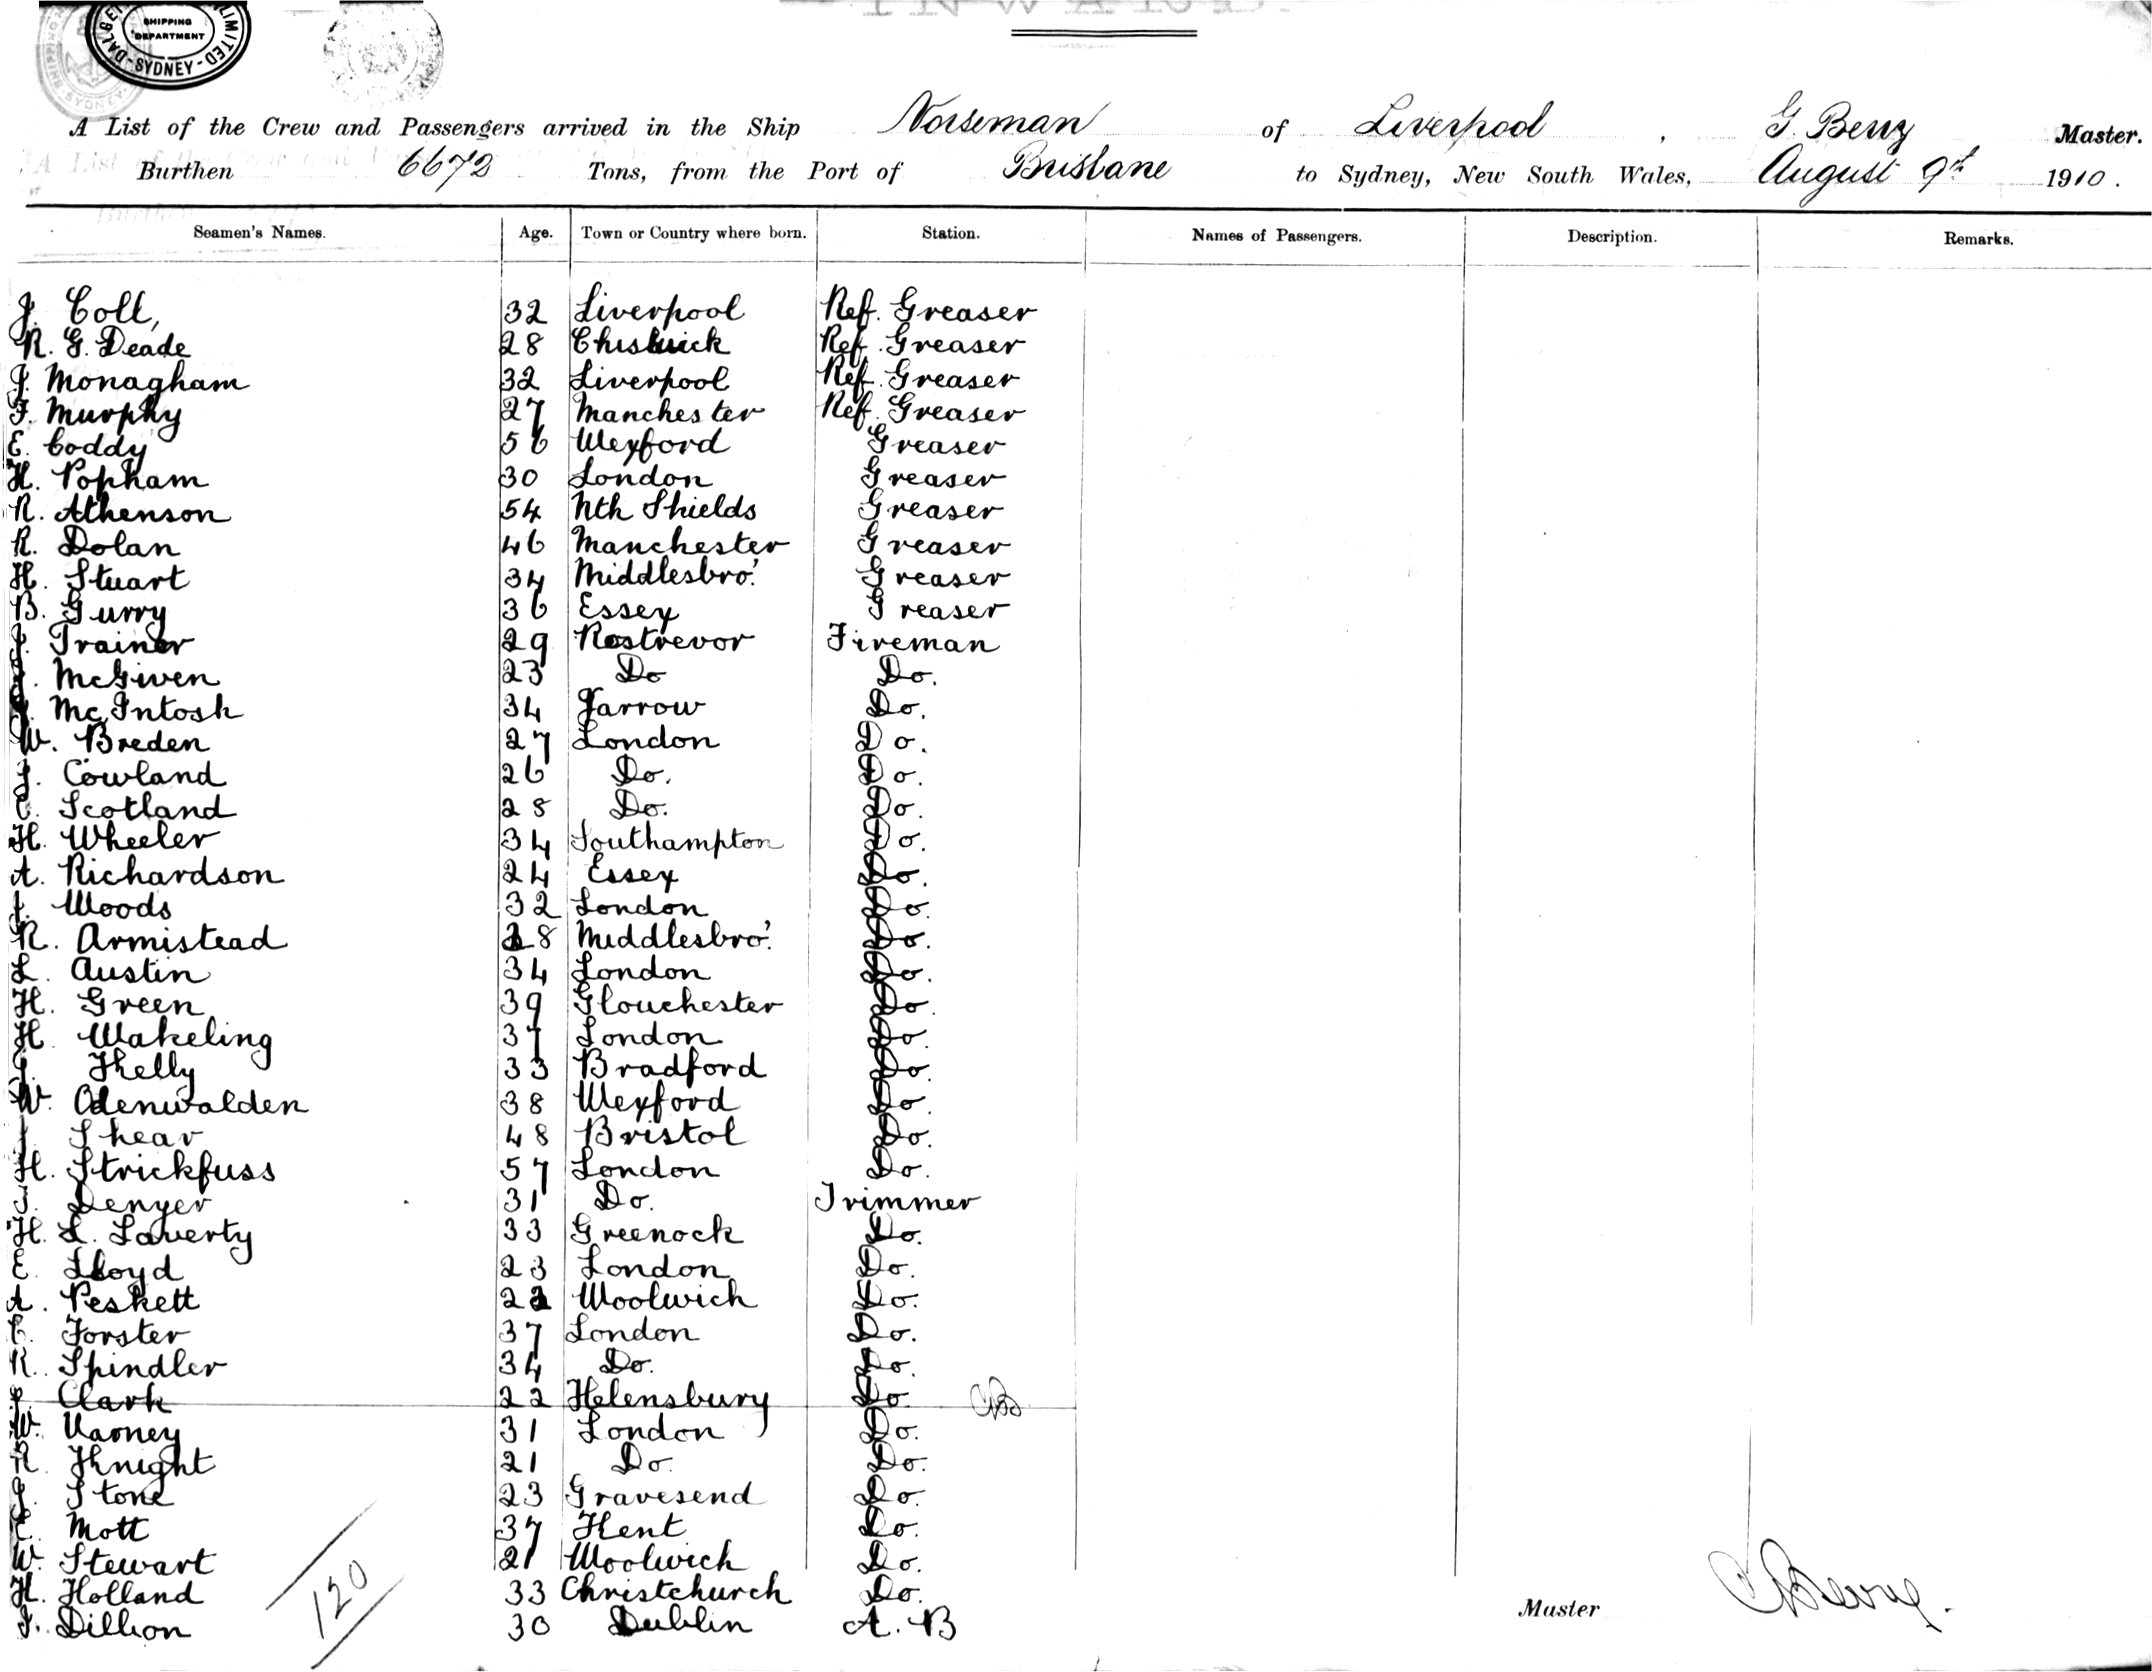 SHIPPING
DEPARTMENT
LIMITED - SYDNEY -
A List of the Crew and Passengers arrived in the Ship Norseman of Liverpool, G. Berry Master.
Burthen 6672 Tons, from the Port of Brisbane to Sydney, New South Wales, August 9th 1910.
Seamen's Names. Age. Town or Country where born. Station. Names of Passengers. Description. Remarks.
J. Coll, 32 Liverpool Ref. Greaser
R. G. Deade 28 Chiswick Ref. Greaser
J. Monagham 32 Liverpool Ref. Greaser
F. Murphy 27 Manchester Ref. Greaser
E. Coddy 56 Wexford Greaser
H. Popham 30 London Greaser
R. Athenson 54 Nth Shields Greaser
R. Dolan 46 Manchester Greaser
H. Stuart 34 Middlesbro'. Greaser
B. Gurry 36 Essex Greaser
J. Trainer 29 Rostrevor Fireman
McGiven 23 Do Do.
McIntosh 34 Jarrow Do.
W. Breden 27 London Do.
J. Cowland 26 Do. Do.
C. Scotland 28 Do. Do.
H. Wheeler 34 Southampton Do.
A. Richardson 24 Essex Do.
J. Woods 32 London Do.
R. Armistead 28 Middlesbro'. Do.
L. Austin 34 London Do.
H. Green 39 Glouchester Do.
H. Wakeling 37 London Do.
J. Kelly 33 Bradford Do.
W. Odenwalden 38 Wexford Do.
J. Shear 48 Bristol Do.
H. Strickfuss 57 London Do.
J. Denyer 31 Do. Trimmer
H. L. Laverty 33 Greenock Do.
E. Lloyd 23 London Do.
A. Peskett 22 Woolwich Do.
C. Forster 37 London Do.
R. Spindler 34 Do. Do.
J. Clark 22 Helensbury Do. CB
W. Varney 31 London Do.
R. Knight 21 Do. Do.
J. Stone 23 Gravesend Do.
C. Mott 37 Kent Do.
W. Stewart 21 Woolwich Do.
H. Holland 33 Christchurch Do.
J. Dillon 30 Dublin A. B
120
Master CBerry.